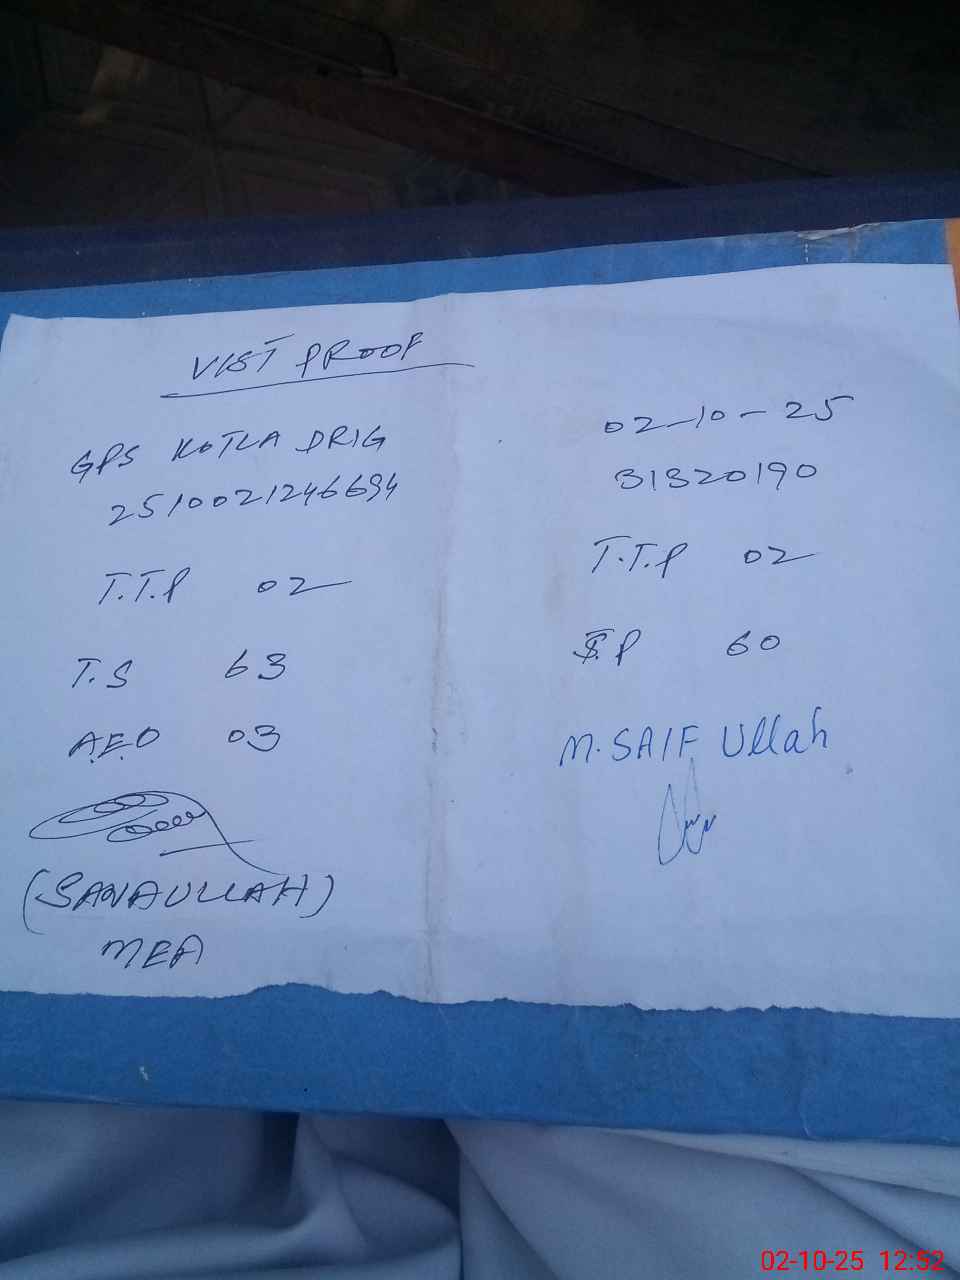 VIST PROOF
GPS KOTLA DRIG 02-10-25
2510021246694 31320190
T.T.P 02 T.T.P 02
T.S 63 S.P 60
A.E.O 03 M.SAIF Ullah
(SANAULLAH)
MEA
02-10-25 12:52